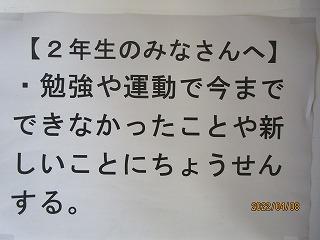 【２年生のみなさんへ】
・勉強や運動で今まで
できなかったことや新
しいことにちょうせん
する。
2022/04/08